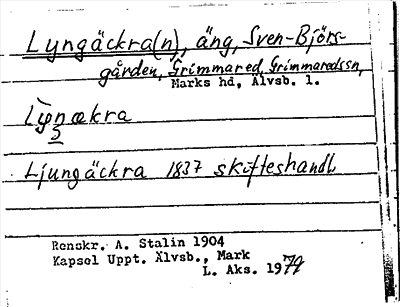 Lyngäckra(n), äng, Sven-Björs-
gården, Grimmared, Grimmaredssn,
Marks hd, Älvsb. l.
Lypnækra
3
Ljungäckra 1837 skifteshandl
Renskr. A. Stalin 1904
Kapsel Uppt. Älvsb., Mark
L. Aks. 1977